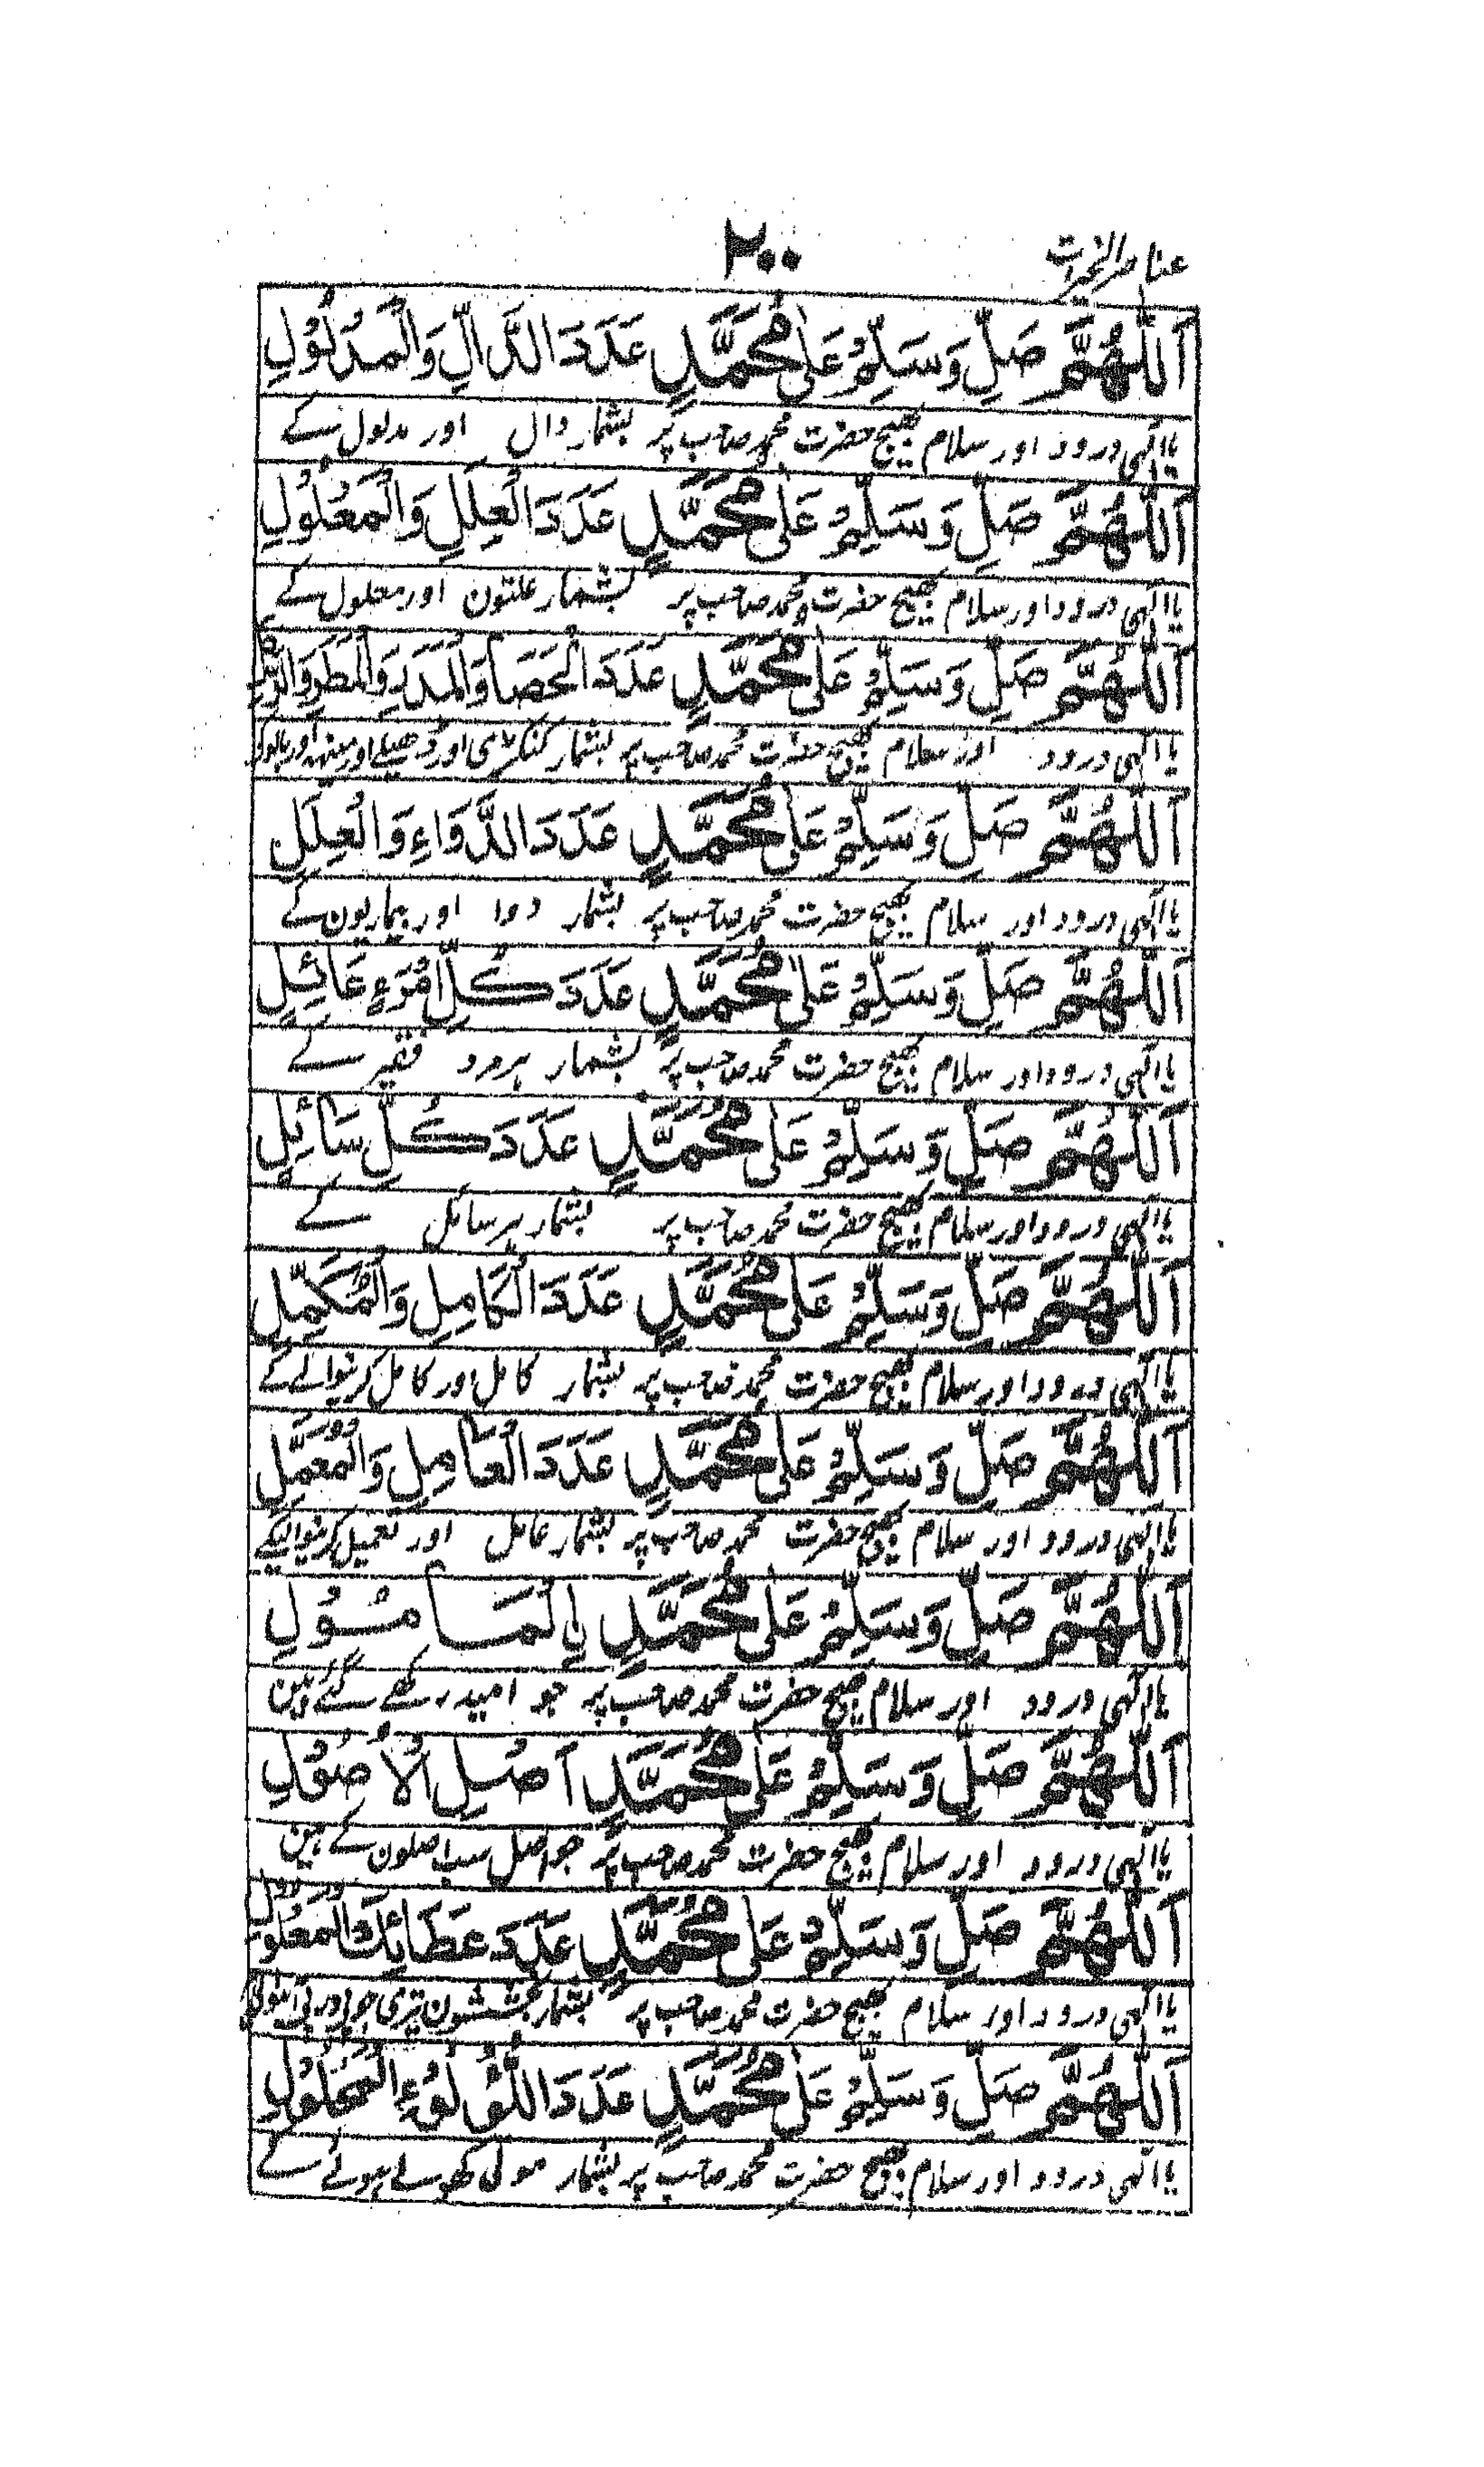 عناصر الخیرات
۲۰۰
اَللّٰهُمَّ صَلِّ وَسَلِّمْ عَلٰى مُحَمَّدٍ عَدَدَ الدَّالِّ وَالْمَدْلُوْلِ
یا الٰہی درود اور سلام بھیج حضرت محمد صاحب پر بشمار دال اور مدلول کے
اَللّٰهُمَّ صَلِّ وَسَلِّمْ عَلٰى مُحَمَّدٍ عَدَدَ الْعِلَلِ وَالْمَعْلُوْلِ
یا الٰہی درود اور سلام بھیج حضرت محمد صاحب پر بشمار علتون اور معلول کے
اَللّٰهُمَّ صَلِّ وَسَلِّمْ عَلٰى مُحَمَّدٍ عَدَدَ الْحَصَا وَالْمَدَرِ وَالْمَطَرِ وَالرَّمْلِ
یا الٰہی درود اور سلام بھیج حضرت محمد صاحب پر بشمار کنکری اور ڈھیلے اور مینہہ اور بالو کے
اَللّٰهُمَّ صَلِّ وَسَلِّمْ عَلٰى مُحَمَّدٍ عَدَدَ الدَّوَاءِ وَالْعِلَلِ
یا الٰہی درود اور سلام بھیج حضرت محمد صاحب پر بشمار دوا اور بیماریون کے
اَللّٰهُمَّ صَلِّ وَسَلِّمْ عَلٰى مُحَمَّدٍ عَدَدَ كُلِّ امْرَءٍ عَائِلٍ
یا الٰہی درود اور سلام بھیج حضرت محمد صاحب پر بشمار ہر مرد فقیر کے
اَللّٰهُمَّ صَلِّ وَسَلِّمْ عَلٰى مُحَمَّدٍ عَدَدَ كُلِّ سَائِلٍ
یا الٰہی درود اور سلام بھیج حضرت محمد صاحب پر بشمار ہر سائل کے
اَللّٰهُمَّ صَلِّ وَسَلِّمْ عَلٰى مُحَمَّدٍ عَدَدَ الْكَامِلِ وَالْمُكَمِّلِ
یا الٰہی درود اور سلام بھیج حضرت محمد صاحب پر بشمار کامل اور کامل کرنیوالے کے
اَللّٰهُمَّ صَلِّ وَسَلِّمْ عَلٰى مُحَمَّدٍ عَدَدَ الْعَامِلِ وَالْمُعَمِّلِ
یا الٰہی درود اور سلام بھیج حضرت محمد صاحب پر بشمار عامل اور تعمیل کرنیوالیکے
اَللّٰهُمَّ صَلِّ وَسَلِّمْ عَلٰى مُحَمَّدٍ الْمَأْمُوْلِ
یا الٰہی درود اور سلام بھیج حضرت محمد صاحب پر جو امید رکھے گئے ہین
اَللّٰهُمَّ صَلِّ وَسَلِّمْ عَلٰى مُحَمَّدٍ اَصْلِ الْاُصُوْلِ
یا الٰہی درود اور سلام بھیج حضرت محمد صاحب پر جو اصل سب اصلون کے ہین
اَللّٰهُمَّ صَلِّ وَسَلِّمْ عَلٰى مُحَمَّدٍ عَدَدَ عَطَائِكَ
یا الٰہی درود اور سلام بھیج حضرت محمد صاحب پر بشمار بخششون تیری جو پی در پی
اَللّٰهُمَّ صَلِّ وَسَلِّمْ عَلٰى مُحَمَّدٍ عَدَدَ اللُّؤْلُوْءِ الْمَحْلُوْلِ
یا الٰہی درود اور سلام بھیج حضرت محمد صاحب پر بشمار موتی کھولے ہوئے کے